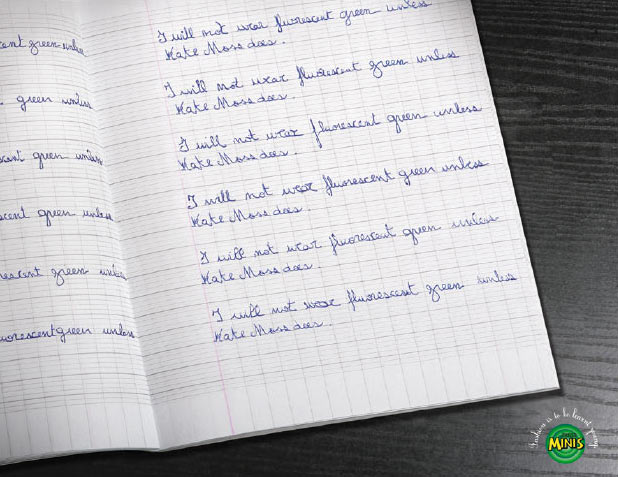 cent green unless
green unless
scent green unless
scent green unless
rescent green unless
uorescent green unless
I will not wear fluorescent green unless
Kate Moss does.
I will not wear fluorescent green unless
Kate Moss does.
I will not wear fluorescent green unless
Kate Moss does.
I will not wear fluorescent green unless
Kate Moss does.
I will not wear fluorescent green unless
Kate Moss does.
I will not wear fluorescent green unless
Kate Moss does.
Fashion is to be learnt young
MINIS